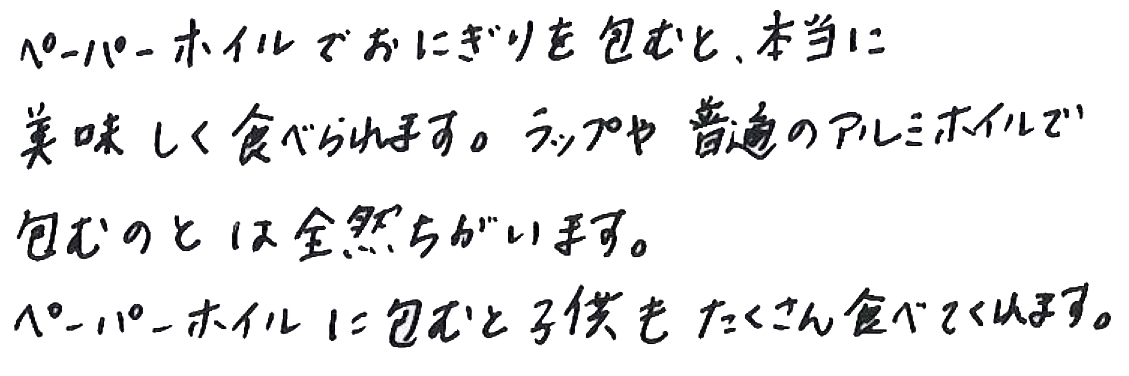 ペーパーホイルでおにぎりを包むと、本当に
美味しく食べられます。ラップや普通のアルミホイルで
包むのとは全然ちがいます。
ペーパーホイルに包むと子供もたくさん食べてくれます。